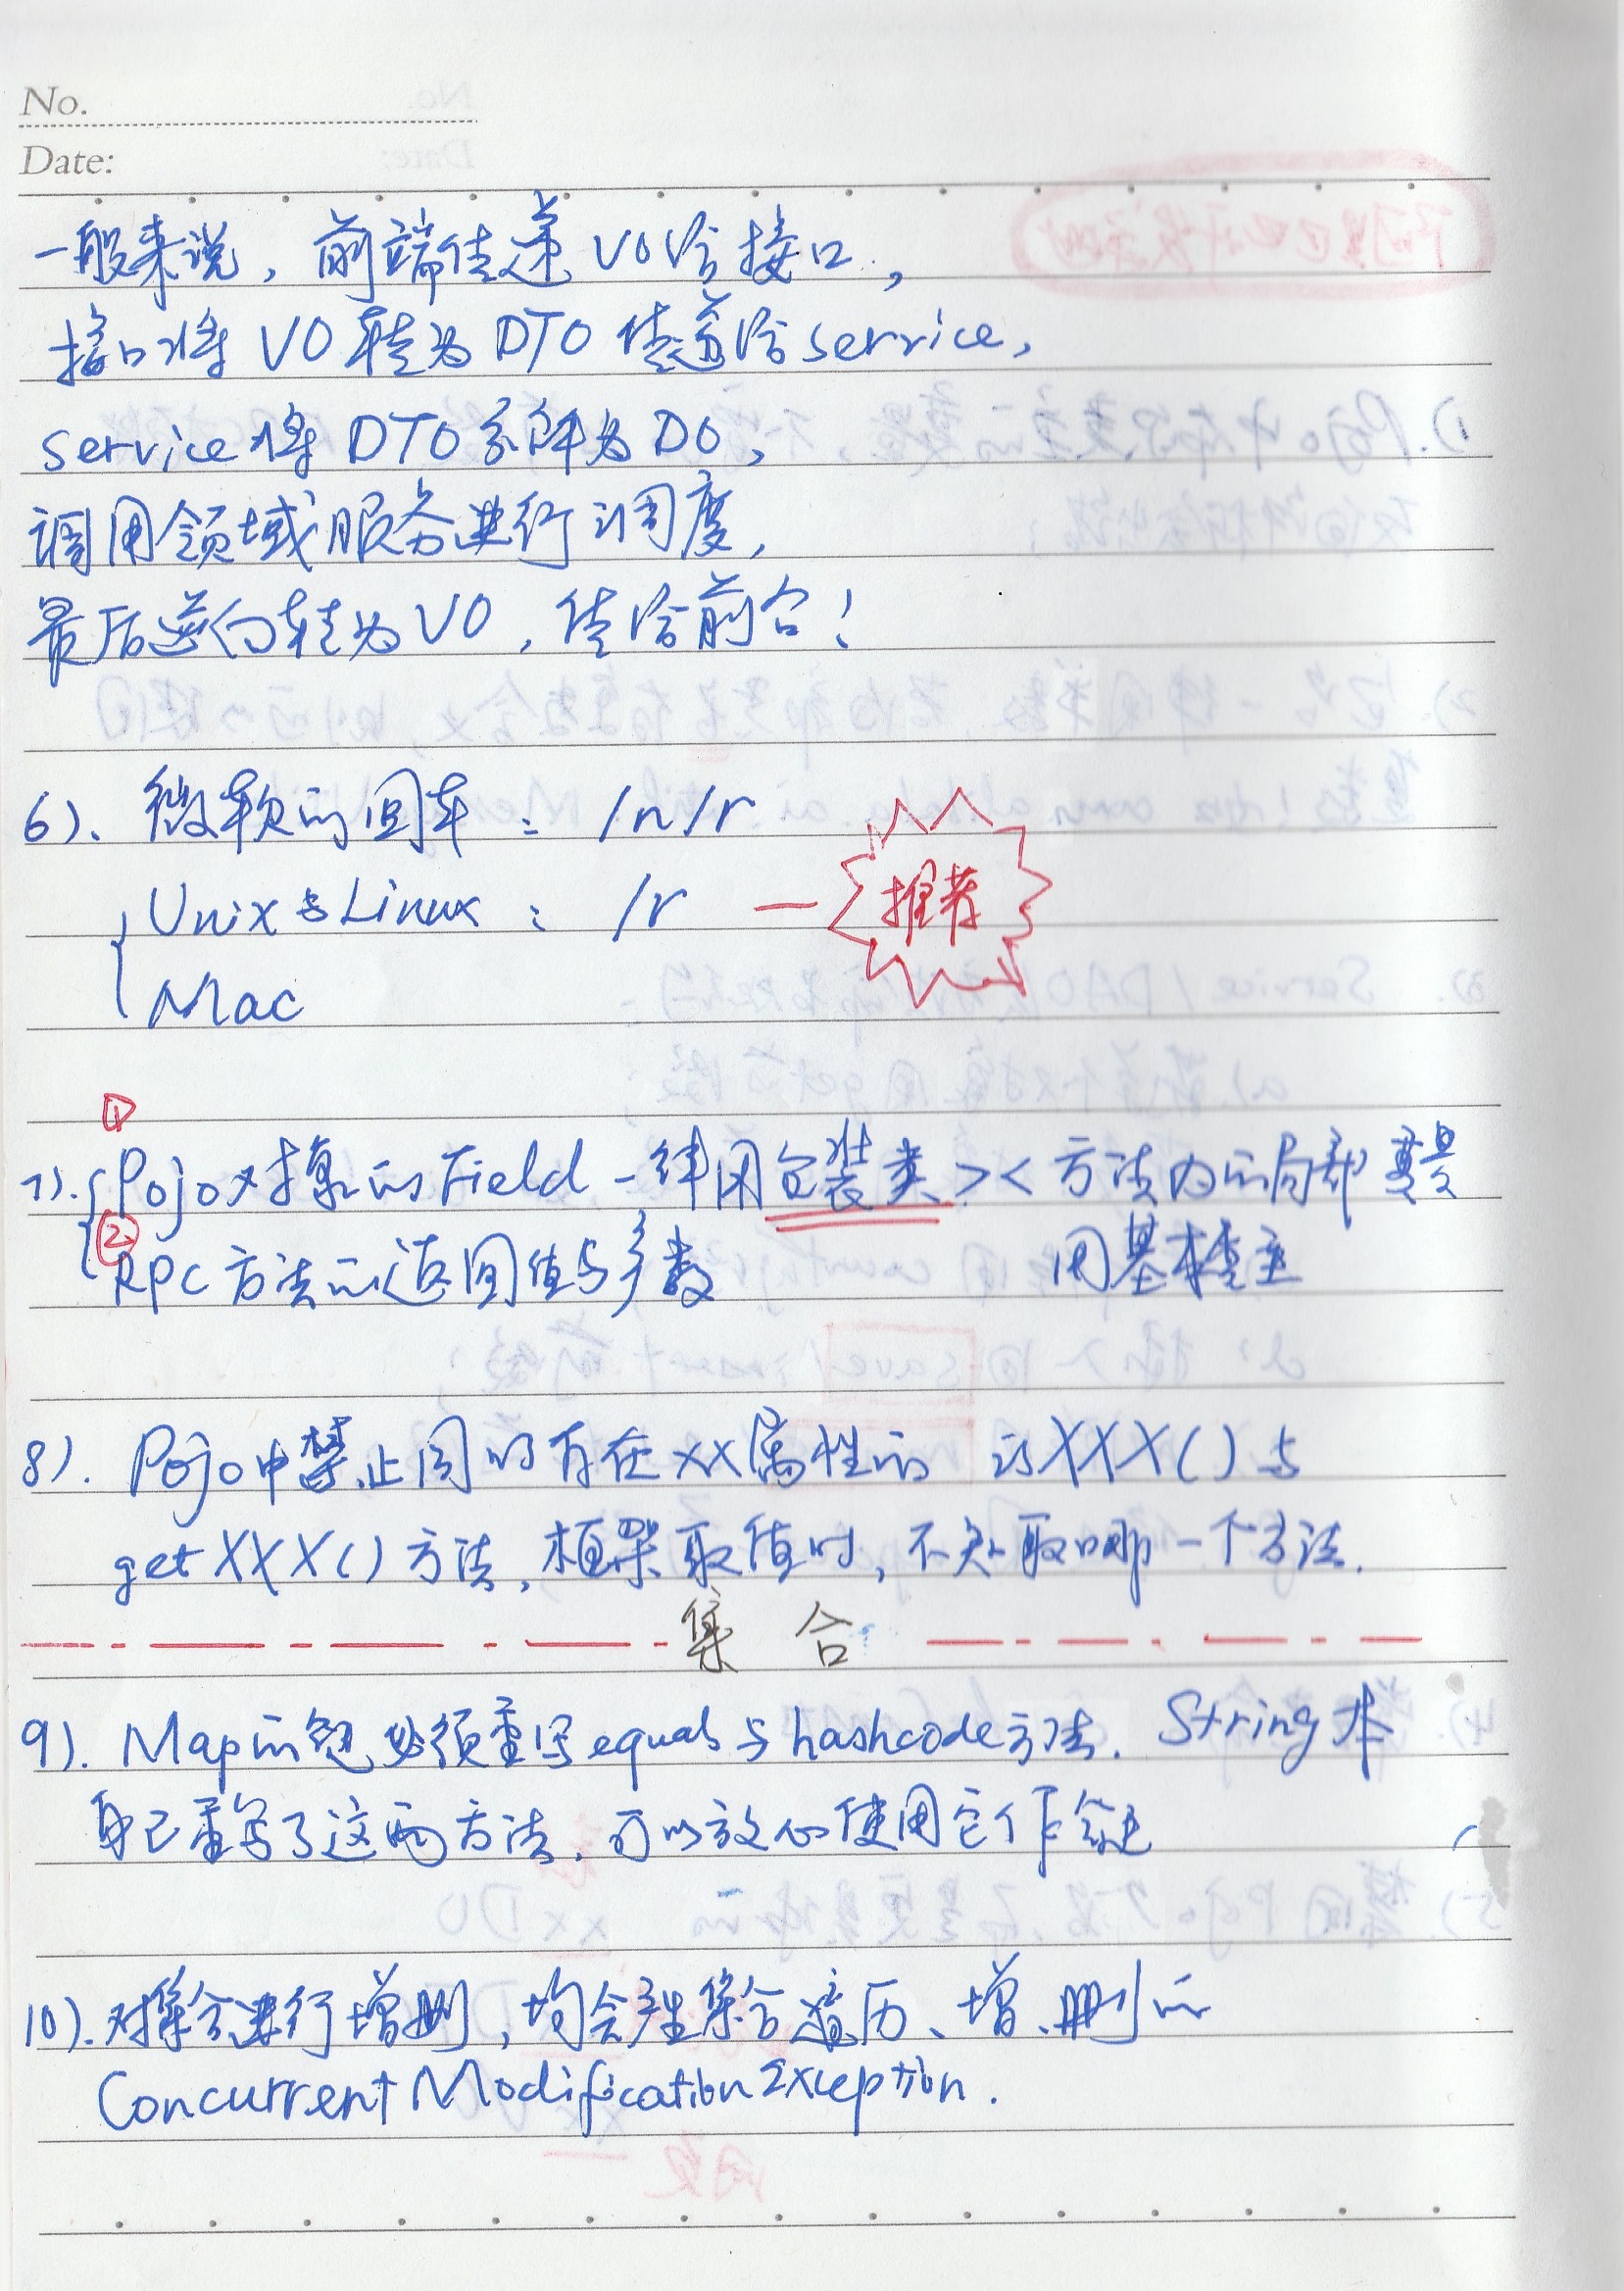 No.
Date:
一般来说，前端传递VO给接口，
接口将VO转为DTO传递给service，
service将DTO分解为DO，
调用领域服务进行调度，
最后逆向转为VO，传给前台！
6）、微软的回车：/n/r
Unix与Linux：/r — 推荐
Mac
①
7）、Pojo对象的Field一律用包装类 >< 方法内的局部变量
② RPC方法的返回值与参数 用基本类型
8）. Pojo中禁止同时存在xx属性的 isXXX()与
getXXX()方法，框架取值时，不知取哪一个方法.
集 合
9）. Map的键必须重写equals与hashcode方法. String本
身已重写了这两方法，可以放心使用它作键
10）. 对集合进行增删，均会产生集合遍历、增、删的
ConcurrentModificationException.